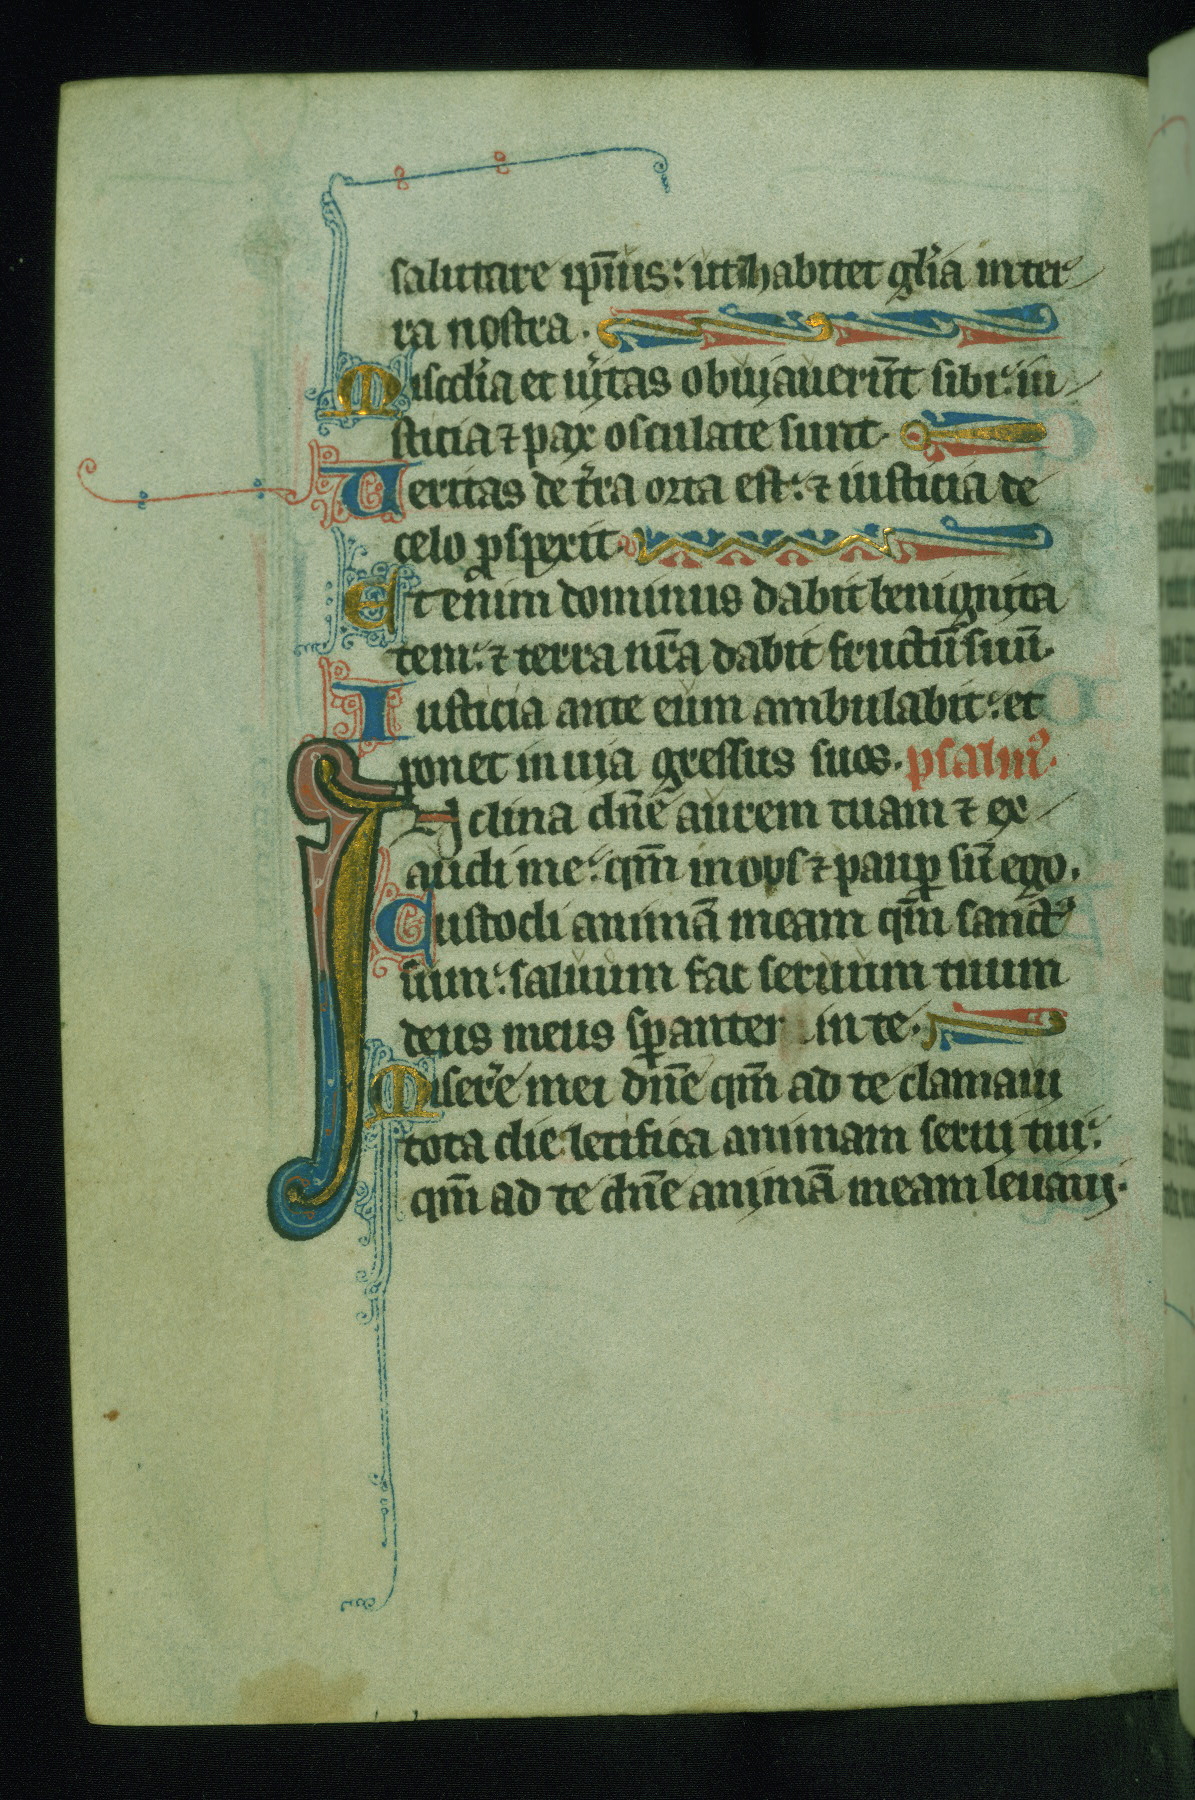 salutare ip̄ius: ut īhabitet gl̄ia in ter
ra nostra.
Misc̄dia et ūitas obuiauerūt sibi: iu
sticia ⁊ pax osculate sunt.
Ueritas de t̄ra orta est: ⁊ iusticia de
celo ꝓspexit.
Etenim dominus dabit benignita
tem: ⁊ terra nr̄a dabit fructū suū.
Iusticia ante eum ambulabit: et
ponet in uia gressus suos. psalm᷒.
INclina dn̄e aurem tuam ⁊ ex
audi me: qm̄ inops ⁊ paup̱ sū ego.
Custodi animā meam qm̄ sanct᷒
sum: saluum fac seruum tuum
deus meus sp̱antem in te.
Misere mei dn̄e qm̄ ad te clamaui
tota die letifica animam serui tui:
qm̄ ad te dn̄e animā meam leuaui.